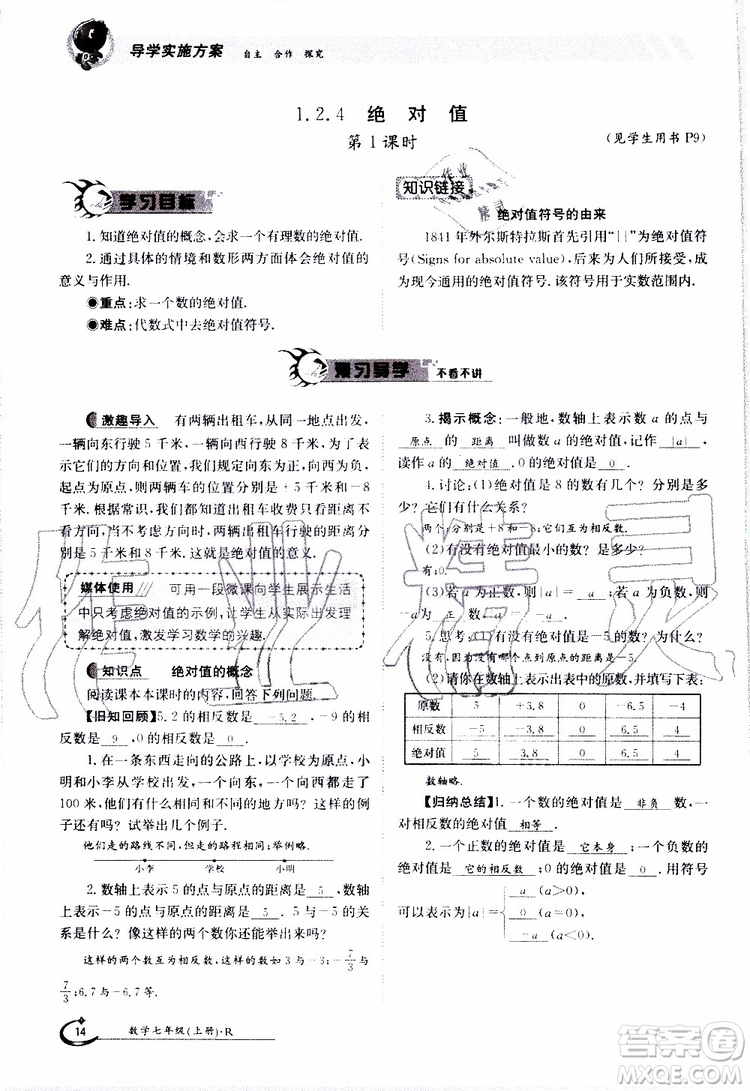 导学实施方案 自主 合作 探究
1.2.4 绝对值
第1课时
(见学生用书 P9)
学习目标
1.知道绝对值的概念,会求一个有理数的绝对值.
2.通过具体的情境和数形两方面体会绝对值的
意义与作用.
●重点:求一个数的绝对值.
●难点:代数式中去绝对值符号.
知识链接
绝对值符号的由来
1841年外尔斯特拉斯首先引用“| |”为绝对值符
号(Signs for absolute value),后来为人们所接受,且
成为现今通用的绝对值符号.该符号用于实数范围内.
预习导学 不看不讲
激趣导入 有两辆出租车,从同一地点出发,
一辆向东行驶5千米,一辆向西行驶8千米,为了表
示它们的方向和位置,我们规定向东为正,以它们的
起点为原点,则两辆车的位置分别计为+5千米和-8
千米.但是,我们知道出租车收费时,只考虑行驶距离不
看方向,大家知道,两辆出租车行驶的距离分别是
5千米和8千米,这就是绝对值的意义.
媒体使用 可用一段微课向学生展示生活
中只考虑绝对值的示例,让学生从实际出发理
解绝对值,激发学习数学的兴趣.
知识点 绝对值的概念
阅读课本本课时的内容,回答下列问题.
【旧知回顾】5.2的相反数是 -5.2 ,-9的相反
数是 9 ,0的相反数是 0 .
1.在一条东西走向的公路上,以学校为原点,小
明和小李从学校出发,一个向东,一个向西都走了
100米,他们所走的有什么相同和不同的地方?这样的例
子多吗?试举出几个例子.
他们走的路线不同,但走的路程相同.例子略.
小李 学校 小明
2.数轴上表示5的点与原点的距离是 5 ,数
轴上表示-5的点与原点的距离是 5 .5与-5有
什么特点?像这样的两个数你还能举出一些来吗?
这样的两个数互为相反数.如数轴上表示3与-3;-7/3与
7/3;6.7与-6.7等.
3.揭示概念:一般地,数轴上表示数a的点与
原点 的 距离 叫做数a的绝对值,记作 |a| ,
读作a的 绝对值 .0的绝对值是 0 .
4.讨论:(1)绝对值是8的数有几个?分别是多
少?它们有什么关系?
两个;分别是+8和-8;它们互为相反数.
(2)有没有绝对值最小的数?是多少?
有;0.
(3)若a为正数,则|a|= a ;若a为负数,则
|a|为 正 数,|a|= -a .
5.思考:(1)有没有绝对值为负的数?为什么?
没有.因为没有哪个点到原点的距离为负数.
(2)请你在数轴上表示出表中的原数,并填写下表:
原数 5 +3.8 0 -6.5 -4
相反数 -5 -3.8 0 6.5 4
绝对值 5 3.8 0 6.5 4
数轴略.
【归纳总结】1.一个数的绝对值是 非负 数,一
对相反数的绝对值 相等 .
2.一个正数的绝对值是 它本身 ;一个负数的
绝对值是 它的相反数 ;0的绝对值是 0 .用符号
可以表示为|a|={ a (a>0),
0 (a=0),
-a (a<0).
14 数学七年级(上册)·R
作业精灵
MXQE.COM